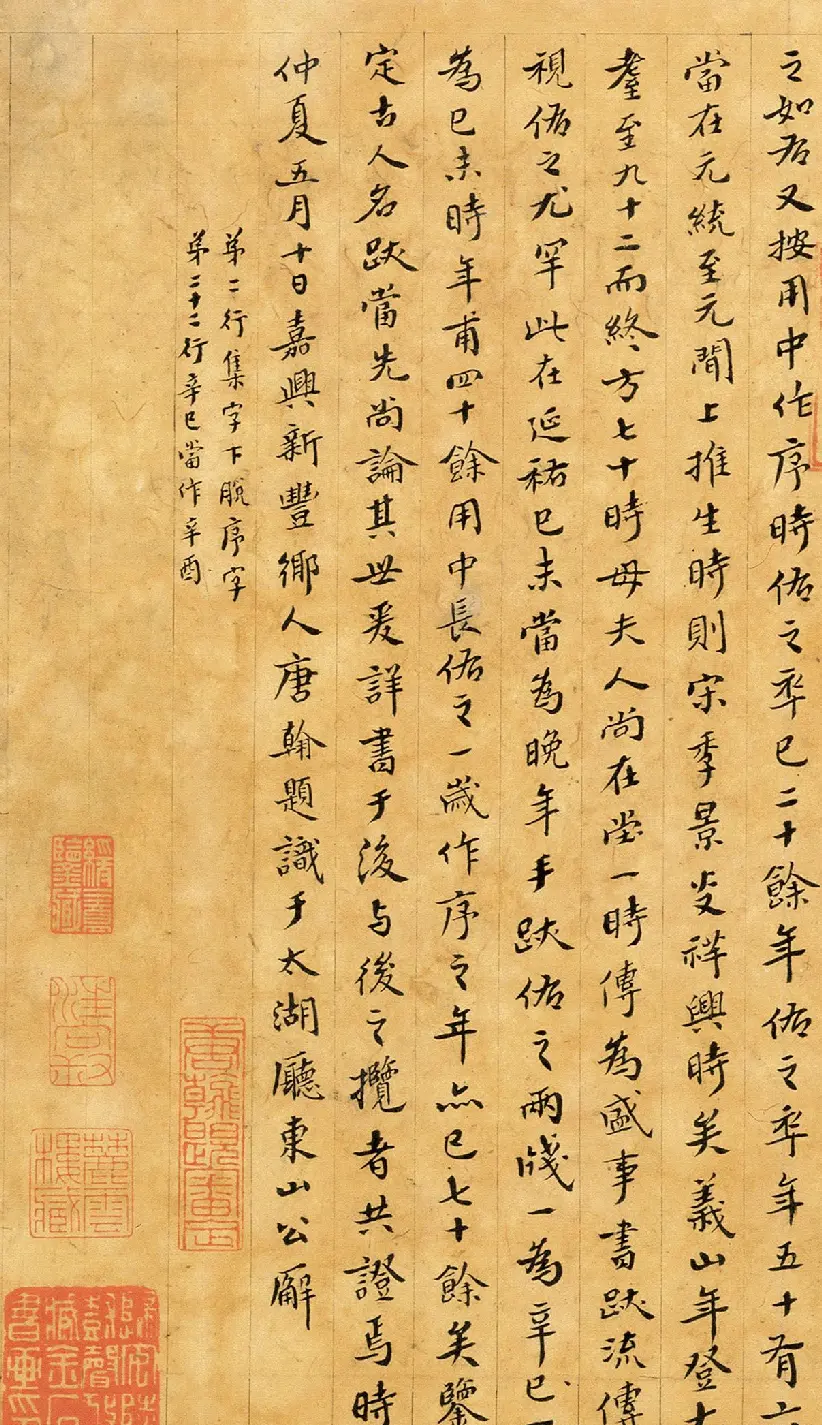 之如君又按用中作序時佑之卒已二十餘年佑之卒年五十有六
當在元統至元間上推生時則宋季景炎祥興時矣義山年登大
耋至九十二而終方七十時母夫人尚在堂一時傳為盛事書跋流傳
視佑之尤罕此在延祐己未當為晚年手跋佑之兩牋一為辛巳一
為己未時年甫四十餘用中長佑之一歲作序之年亦已七十餘矣鑒
定古人名跋當先尚論其世爰詳書于後与後之攬者共證焉時
仲夏五月十日嘉興新豐鄉人唐翰題識于太湖廳東山公廨
弟二行集字下脫序字
弟二十二行辛巳當作辛酉
唐翰題審定